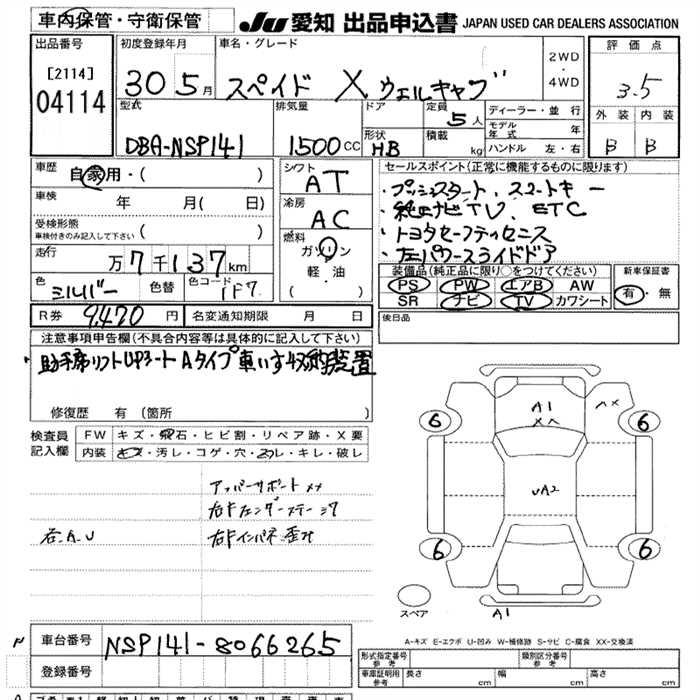 車内保管・守衛保管
JU 愛知 出品申込書 JAPAN USED CAR DEALERS ASSOCIATION
出品番号 初度登録年月 車名・グレード 2WD・4WD 評価点
[2114] 04114
30 5月 スペイド X ウェルキャブ 3.5
型式 排気量 ドア 定員 5人 ディーラー・並行 外装 内装
モデル年式 年
DBA-NSP141 1500cc 形状 HB 積載 kg ハンドル 左・右 B B
車歴 自家用・( )
シフト AT
セールスポイント(正常に機能するものに限ります)
車検 年 月( 日)
冷房 AC
・プッシュスタート、スマートキー
・純正ナビTV、ETC
受検形態 車検付きのみ記入して下さい ( )
・トヨタセーフティセンス
走行 万7千137km
燃料 ガソリン 軽・油 ( )
・左パワースライドドア
装備品(純正品に限り○をつけてください) 新車保証書
色 シルバー 色替 色コード 1F7
PS PW エアB AW 有・無
SR ナビ TV カワシート
R券 9,470円 名変通知期限 月 日
後日品
注意事項申告欄(不具合内容等は具体的に記入して下さい)
助手席リフトUPシートAタイプ車いす収納装置
修復歴 有(箇所 )
検査員記入欄 FW キズ・飛石・ヒビ割・リペア跡・X要
内装 キズ・汚レ・コゲ・穴・スレ・キレ・破レ
A1 XX
XX
6 6
アッパーサポートXX
UA2
右.A.U
6 6
スペア A1
A-キズ E-エクボ U-凹み W-補修跡 S-サビ C-腐食 XX-交換済
車台番号 NSP141-8066265
登録番号
形式指定番号 参考 類別区分番号 参考
車庫証明用 参考 長さ cm 幅 cm 高さ cm